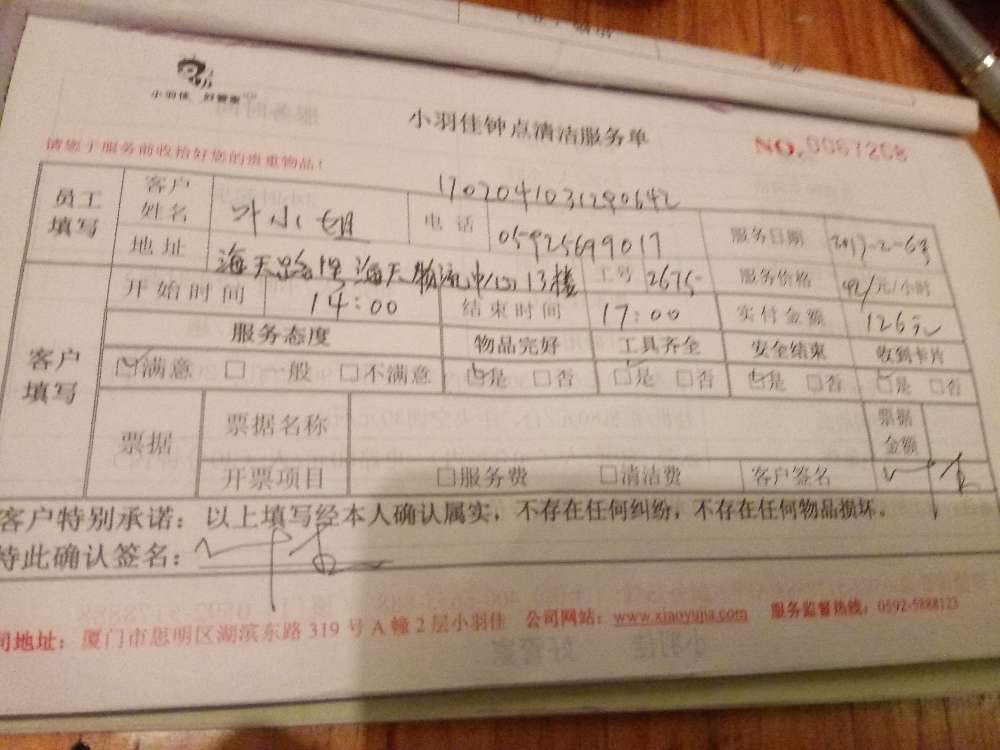 小羽佳 好管家
小羽佳钟点清洁服务单
NO.0067268
请您于服务前收拾好您的贵重物品!
1702041031290642
员工填写 客户姓名 叶小姐 电话 05925699017 服务日期
地址 海天路 海天物流中心13楼 工号 2675 服务价格 42/元/小时
开始时间 14:00 结束时间 17:00 实付金额 126元
客户填写 服务态度 物品完好 工具齐全 安全结束 收到卡片
☑满意 □一般 □不满意 ☑是 □否 ☑是 □否 ☑是 □否 ☑是 □否
票据 票据名称 票据金额
开票项目 □服务费 □清洁费 客户签名
客户特别承诺：以上填写经本人确认属实，不存在任何纠纷，不存在任何物品损坏。
特此确认签名：
司地址：厦门市思明区湖滨东路 319 号 A 幢 2 层小羽佳 公司网站：www.xiaoyujia.com 服务监督热线：0592-5888123